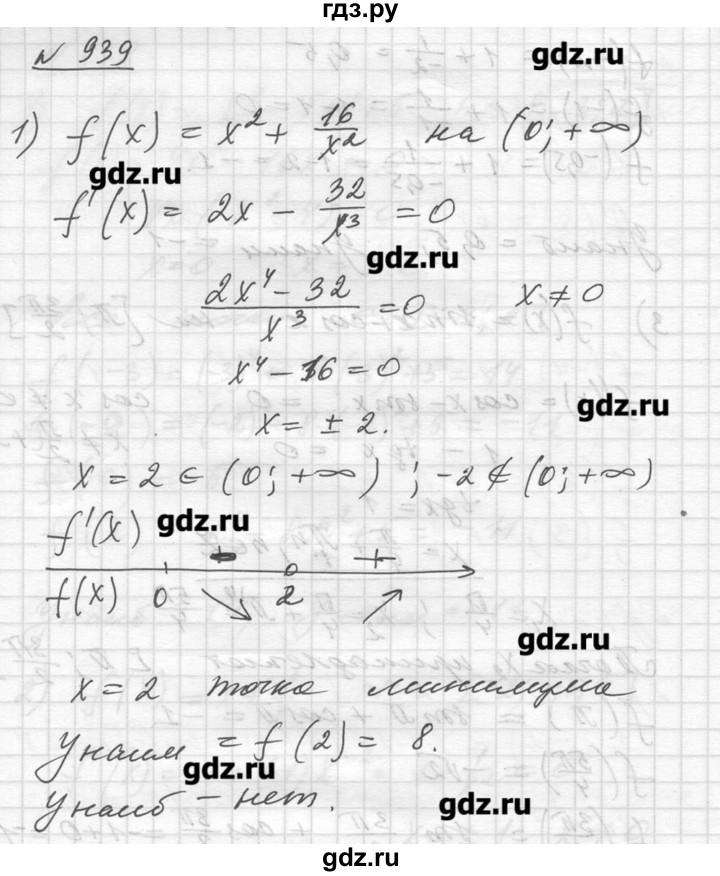 гдз.ру
№ 939
gdz.ru
1) f(x) = x² + 16/x² на (0; +∞)
gdz.ru
f'(x) = 2x − 32/x³ = 0
gdz.ru
(2x⁴ − 32)/x³ = 0 x ≠ 0
x⁴ − 16 = 0
gdz.ru
x = ± 2.
x = 2 ∈ (0; +∞) ; −2 ∉ (0; +∞)
gdz.ru
f'(x) − +
f(x) 0 ↘ 2 ↗
gdz.ru
x = 2 точка минимума
y наим = f(2) = 8.
gdz.ru
y наиб − нет.
gdz.ru
gdz.ru